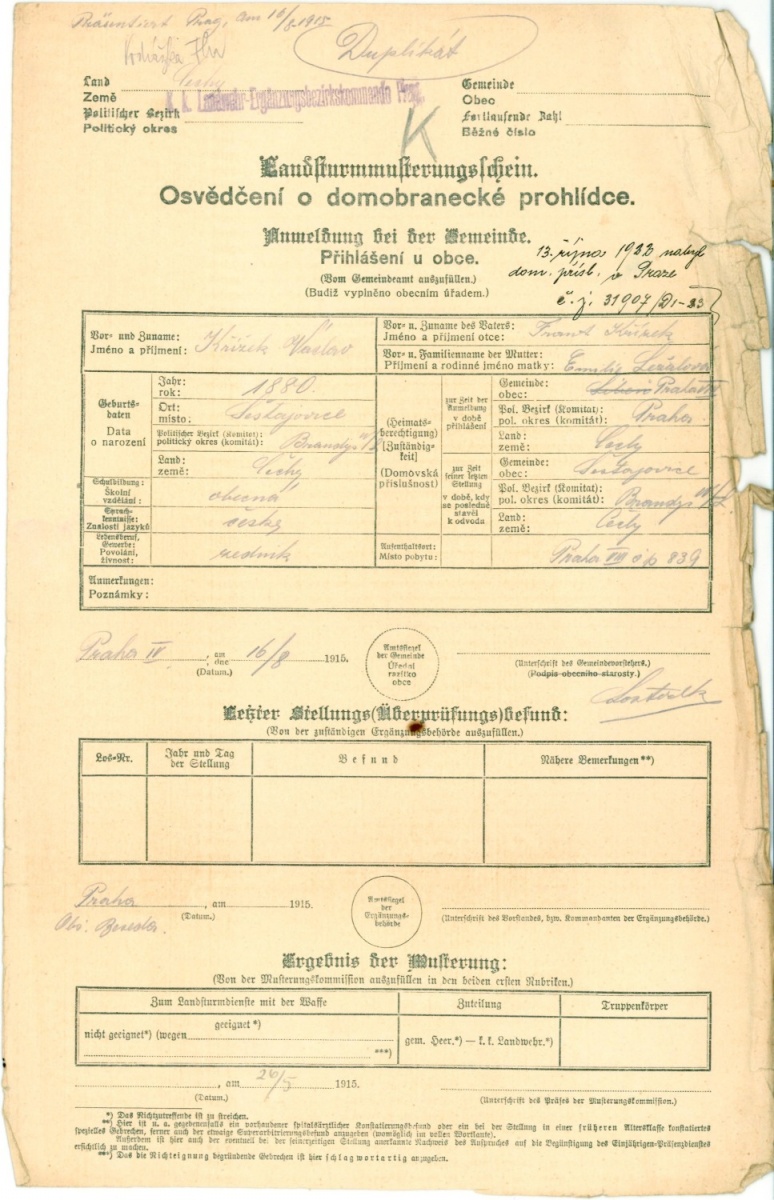 Präsentiert Prag, am 16/8 1915
Duplikát
Land
Země
Čechy
Politischer Bezirk
Politický okres
K. k. Landwehr-Ergänzungsbezirkskommando Prag.
Gemeinde
Obec
Fortlaufende Zahl
Běžné číslo
K
Landsturmmusterungsschein.
Osvědčení o domobranecké prohlídce.
Anmeldung bei der Gemeinde.
Přihlášení u obce.
(Vom Gemeindeamt auszufüllen.)
(Budiž vyplněno obecním úřadem.)
13. října 1922 nabyl
dom. přísl. v Praze
č. j. 31907/D1-23
Vor- und Zuname:
Jméno a příjmení: Křížek Václav
Vor- u. Zuname des Vaters:
Jméno a příjmení otce: Frant Křížek
Vor- u. Familienname der Mutter:
Příjmení a rodinné jméno matky: Emilie
Geburts-
daten
Data
o narození
Jahr:
rok: 1880.
Ort:
místo: Šestajovice
Politischer Bezirk (Komitat):
politický okres (komitát): Brandýs n/L
Land:
země: Čechy
Schulbildung:
Školní
vzdělání: obecná
Sprach-
kenntnisse:
Znalosti jazyků česky
Lebensberuf,
Gewerbe:
Povolání,
živnost: řezník
(Heimats-
berechtigung)
[Zuständig-
keit]
(Domovská
příslušnost)
zur Zeit der
Anmeldung
v době
přihlášení
Gemeinde:
obec: Praha
Pol. Bezirk (Komitat):
pol. okres (komitát): Praha
Land:
země: Čechy
zur Zeit
seiner letzten
Stellung
v době, kdy
se posledně
stavěl
k odvodu
Gemeinde:
obec: Šestajovice
Pol. Bezirk (Komitat):
pol. okres (komitát): Brandýs n/L
Land:
země: Čechy
Aufenthaltsort:
Místo pobytu: Praha VIII čp 839
Anmerkungen:
Poznámky:
Praha IV, am
dne 16/8 1915.
(Datum.)
Amtssiegel
der Gemeinde
Úřední
razítko
obce
(Unterschrift des Gemeindevorstehers.)
(Podpis obecního starosty.)
Letzter Stellungs(Überprüfungs)befund:
(Von der zuständigen Ergänzungsbehörde auszufüllen.)
Los-Nr.
Jahr und Tag
der Stellung
Befund
Nähere Bemerkungen**)
Praha, am 1915.
(Datum.)
Amtssiegel
der
Ergänzungs-
behörde
(Unterschrift des Vorstandes, bzw. Kommandanten der Ergänzungsbehörde.)
Ergebnis der Musterung:
(Von der Musterungskommission auszufüllen in den beiden ersten Rubriken.)
Zum Landsturmdienste mit der Waffe
Zuteilung
Truppenkörper
geeignet*)
nicht geeignet*) (wegen
***)
gem. Heer.*) — k. k. Landwehr.*)
, am 26/5 1915.
(Datum.)
(Unterschrift des Präses der Musterungskommission.)
*) Das Nichtzutreffende ist zu streichen.
**) Hier ist u. a. gegebenenfalls ein vorhandener spitalsärztlicher Konstatierungsbefund oder ein bei der Stellung in einer früheren Altersklasse konstatiertes
spezielles Gebrechen, ferner auch der etwaige Superarbitrierungsbefund anzugeben (womöglich im vollen Wortlaute).
Außerdem ist hier auch der eventuell bei der seinerzeitigen Stellung anerkannte Nachweis des Anspruches auf die Begünstigung des Einjährigen-Präsenzdienstes
ersichtlich zu machen.
***) Das die Nichteignung begründende Gebrechen ist hier schlagwortartig anzugeben.